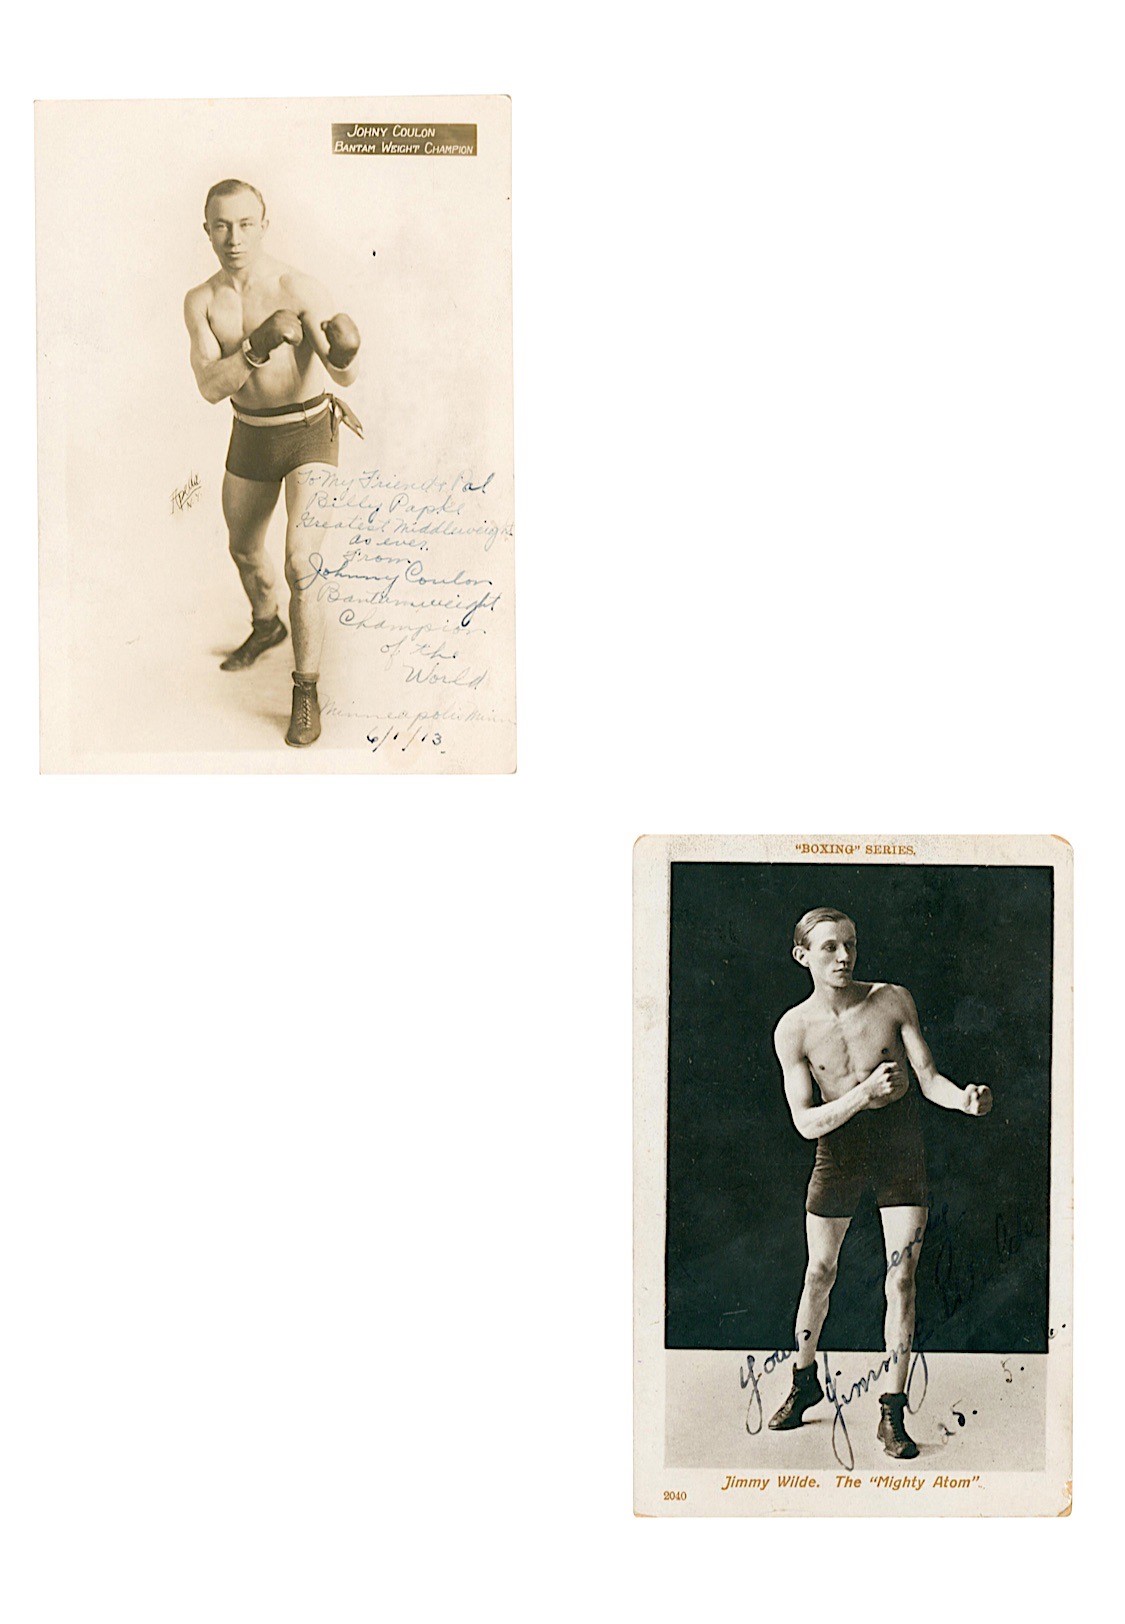 JOHNY COULON
BANTAM WEIGHT CHAMPION
Apeda
N.Y.
To My Friend & Pal
Billy Papke
Greatest Middleweight
as ever
From
Johnny Coulon
Bantamweight
Champion
of the
World.
Minneapolis Minn
6/1/13
"BOXING" SERIES.
Yours
Jimmy Wilde
25. 5.
Jimmy Wilde. The "Mighty Atom".
2040